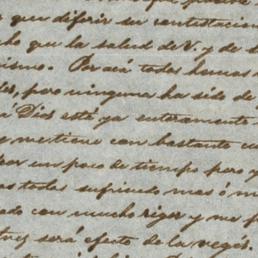 que diferir su contestacion
que la salud de V. y de
mismo. Por acá todos hemos
pero ninguna ha sido de
á Dios está ya enteramente
y me tiene con bastante
un poco de tiempo pero
todas sufriendo mas ó
con mucho rigor y me
será efecto de la vegez.